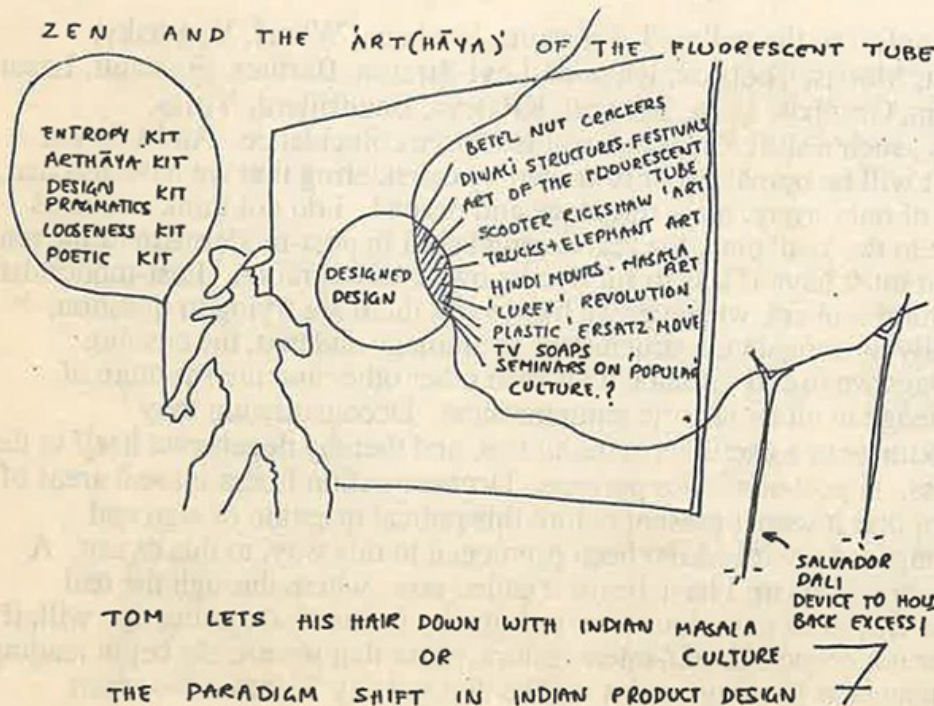 ZEN AND THE 'ART(HĀYA)' OF THE FLUORESCENT TUBE
ENTROPY KIT
ARTHĀYA KIT
DESIGN PRAGMATICS KIT
LOOSENESS KIT
POETIC KIT
DESIGNED
DESIGN
BETEL NUT CRACKERS
DIWALI STRUCTURES-FESTIVALS
ART OF THE FLOURESCENT TUBE'
SCOOTER RICKSHAW 'ART'
TRUCKS + ELEPHANT ART
HINDI MOVIES - MASALA ART
'LUREX' REVOLUTION!
PLASTIC 'ERSATZ' MOVE
TV SOAPS
SEMINARS ON POPULAR
CULTURE.?
SALVADOR
DALI
DEVICE TO HOLD
BACK EXCESS!
TOM LETS HIS HAIR DOWN WITH INDIAN MASALA
CULTURE
OR
THE PARADIGM SHIFT IN INDIAN PRODUCT DESIGN